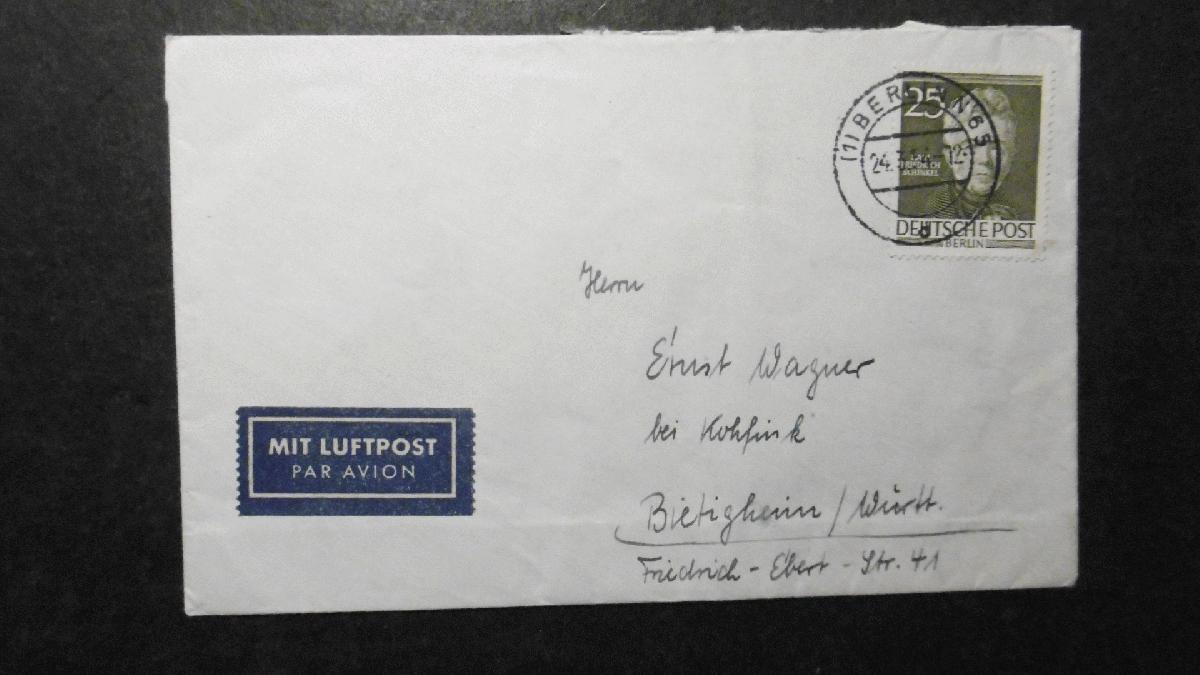 (1) BERLIN N 65
25
SCHINKEL
DEUTSCHE POST
BERLIN
Herrn
Ernst Wagner
bei Kohfink
Bietigheim / Württ.
Friedrich - Ebert - Str. 41
MIT LUFTPOST
PAR AVION